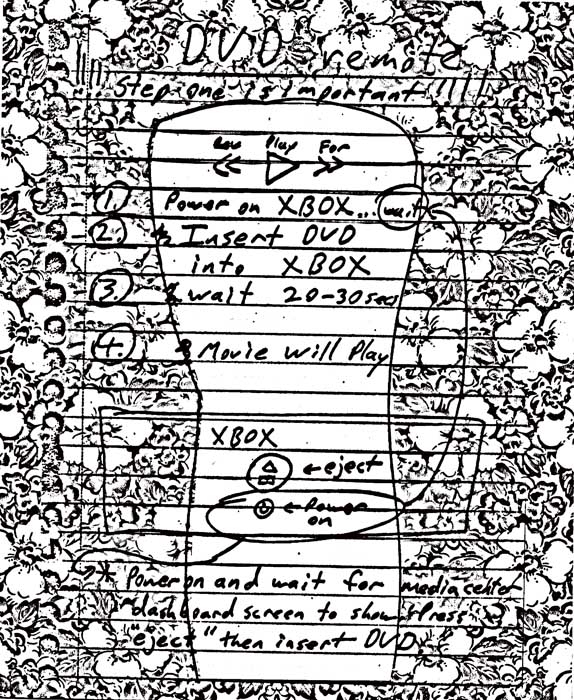 DVD remote
Step one is important!!!!
Rev Play For
1. Power on XBOX... wait
2. Insert DVD
into XBOX
3. wait 20-30sec
4. Movie will Play
XBOX
←eject
←Power
on
* Power on and wait for mediacenter
dashboard screen to show. Press
"eject" then insert DVD